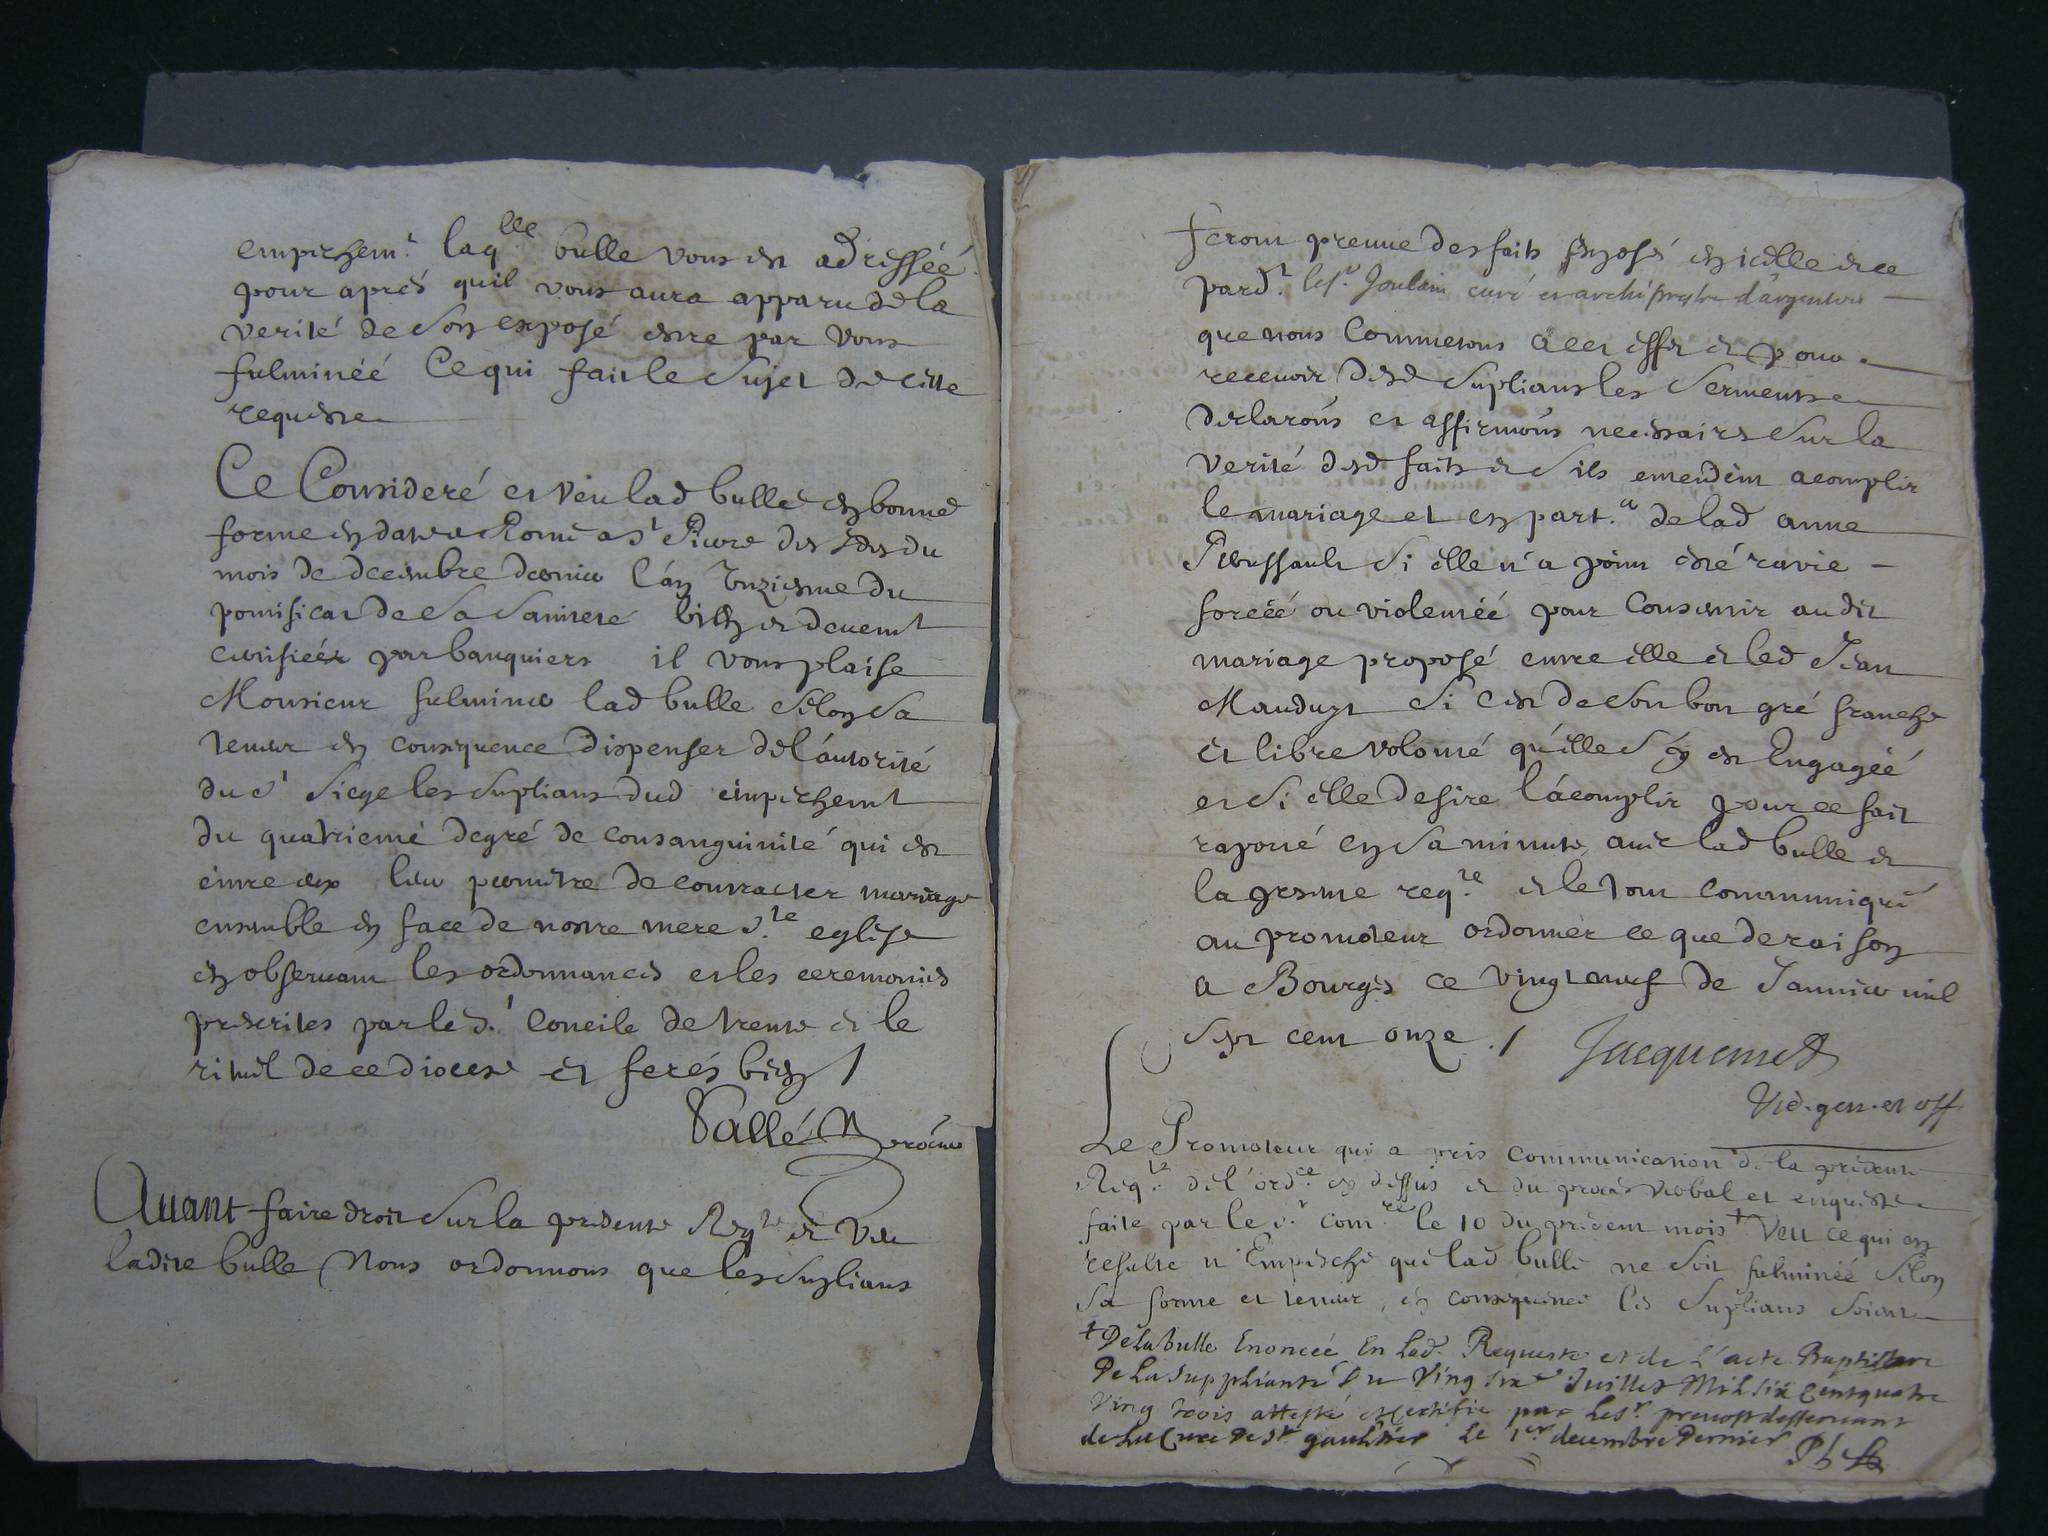 empeschem.t laq.lle bulle vous est adressée
pour aprés quil vous aura apparu de la
verité de son exposé estre par vous
fulminéé Ce qui fait le sujet de cette
requeste
Ce Consideré et veu lad bulle en bonne
forme en datte a Rome a st Pierre des ides du
mois de decembre dernier l'an unziesme du
pontificat de sa sainteté bien et deuemt
certifiéé par banquiers il vous plaise
Monsieur fulminer lad bulle selon sa
teneur en consequence dispenser de l'autorité
du st siege les suplians dud empeschemt
du quatrieme degré de consanguinité qui est
entre eux leur permettre de contracter mariage
ensemble en face de nostre mere s.te eglise
en observant les ordonnances et les ceremonies
prescrites par le s.t concile de trente et le
rituel de ce diocese et ferés bien /
Vallé
Avant faire droit sur la presente Reqte et veu
ladite bulle Nous ordonnons que les suplians
feront preuve des faits exposés en icelle et ce
pard.t le sr Joulain curé et archiprestre d'argenton
que nous commetons a cet effet et pour
recevoir desd suplians les serments
declarons et affirmons necessaires sur la
verité desd faits et s'ils entendent acomplir
le mariage et en part.er de lad anne
si elle n'a point esté ravie
forcéé ou violentéé pour consentir au dit
mariage proposé entre elle et led Jean
Manduyt si c'est de son bon gré franche
et libre volonté qu'elle s'y est Engagéé
et si elle desire l'acomplir pour ce fait
raporté en sa minute avec lad bulle et
la presente req.te et le tout communiqué
au promoteur ordonner ce que de raison
a Bourges ce vingt neuf de Janvier mil
sept cent onze ./ Jacquemet
Vic. gen. et off
Le Promoteur qui a pris communication de la presente
Req.te de l'ord.ce cy dessus et du procés verbal et enqueste
faite par le s.r com.re le 10 du present mois + veu ce qui en
resulte n'Empesche que lad bulle ne soit fulminéé selon
sa forme et teneur, en consequence les suplians soient
+ De la bulle Enoncéé En Lad. Requeste et de L'acte Baptistaire
De La supplianté Du Ving six Juillet Mil six Cent quatre
Ving trois attesté et certifié par Le sr. prevost desservant
de La Cure De st gaultier Le 1er decembre Dernier